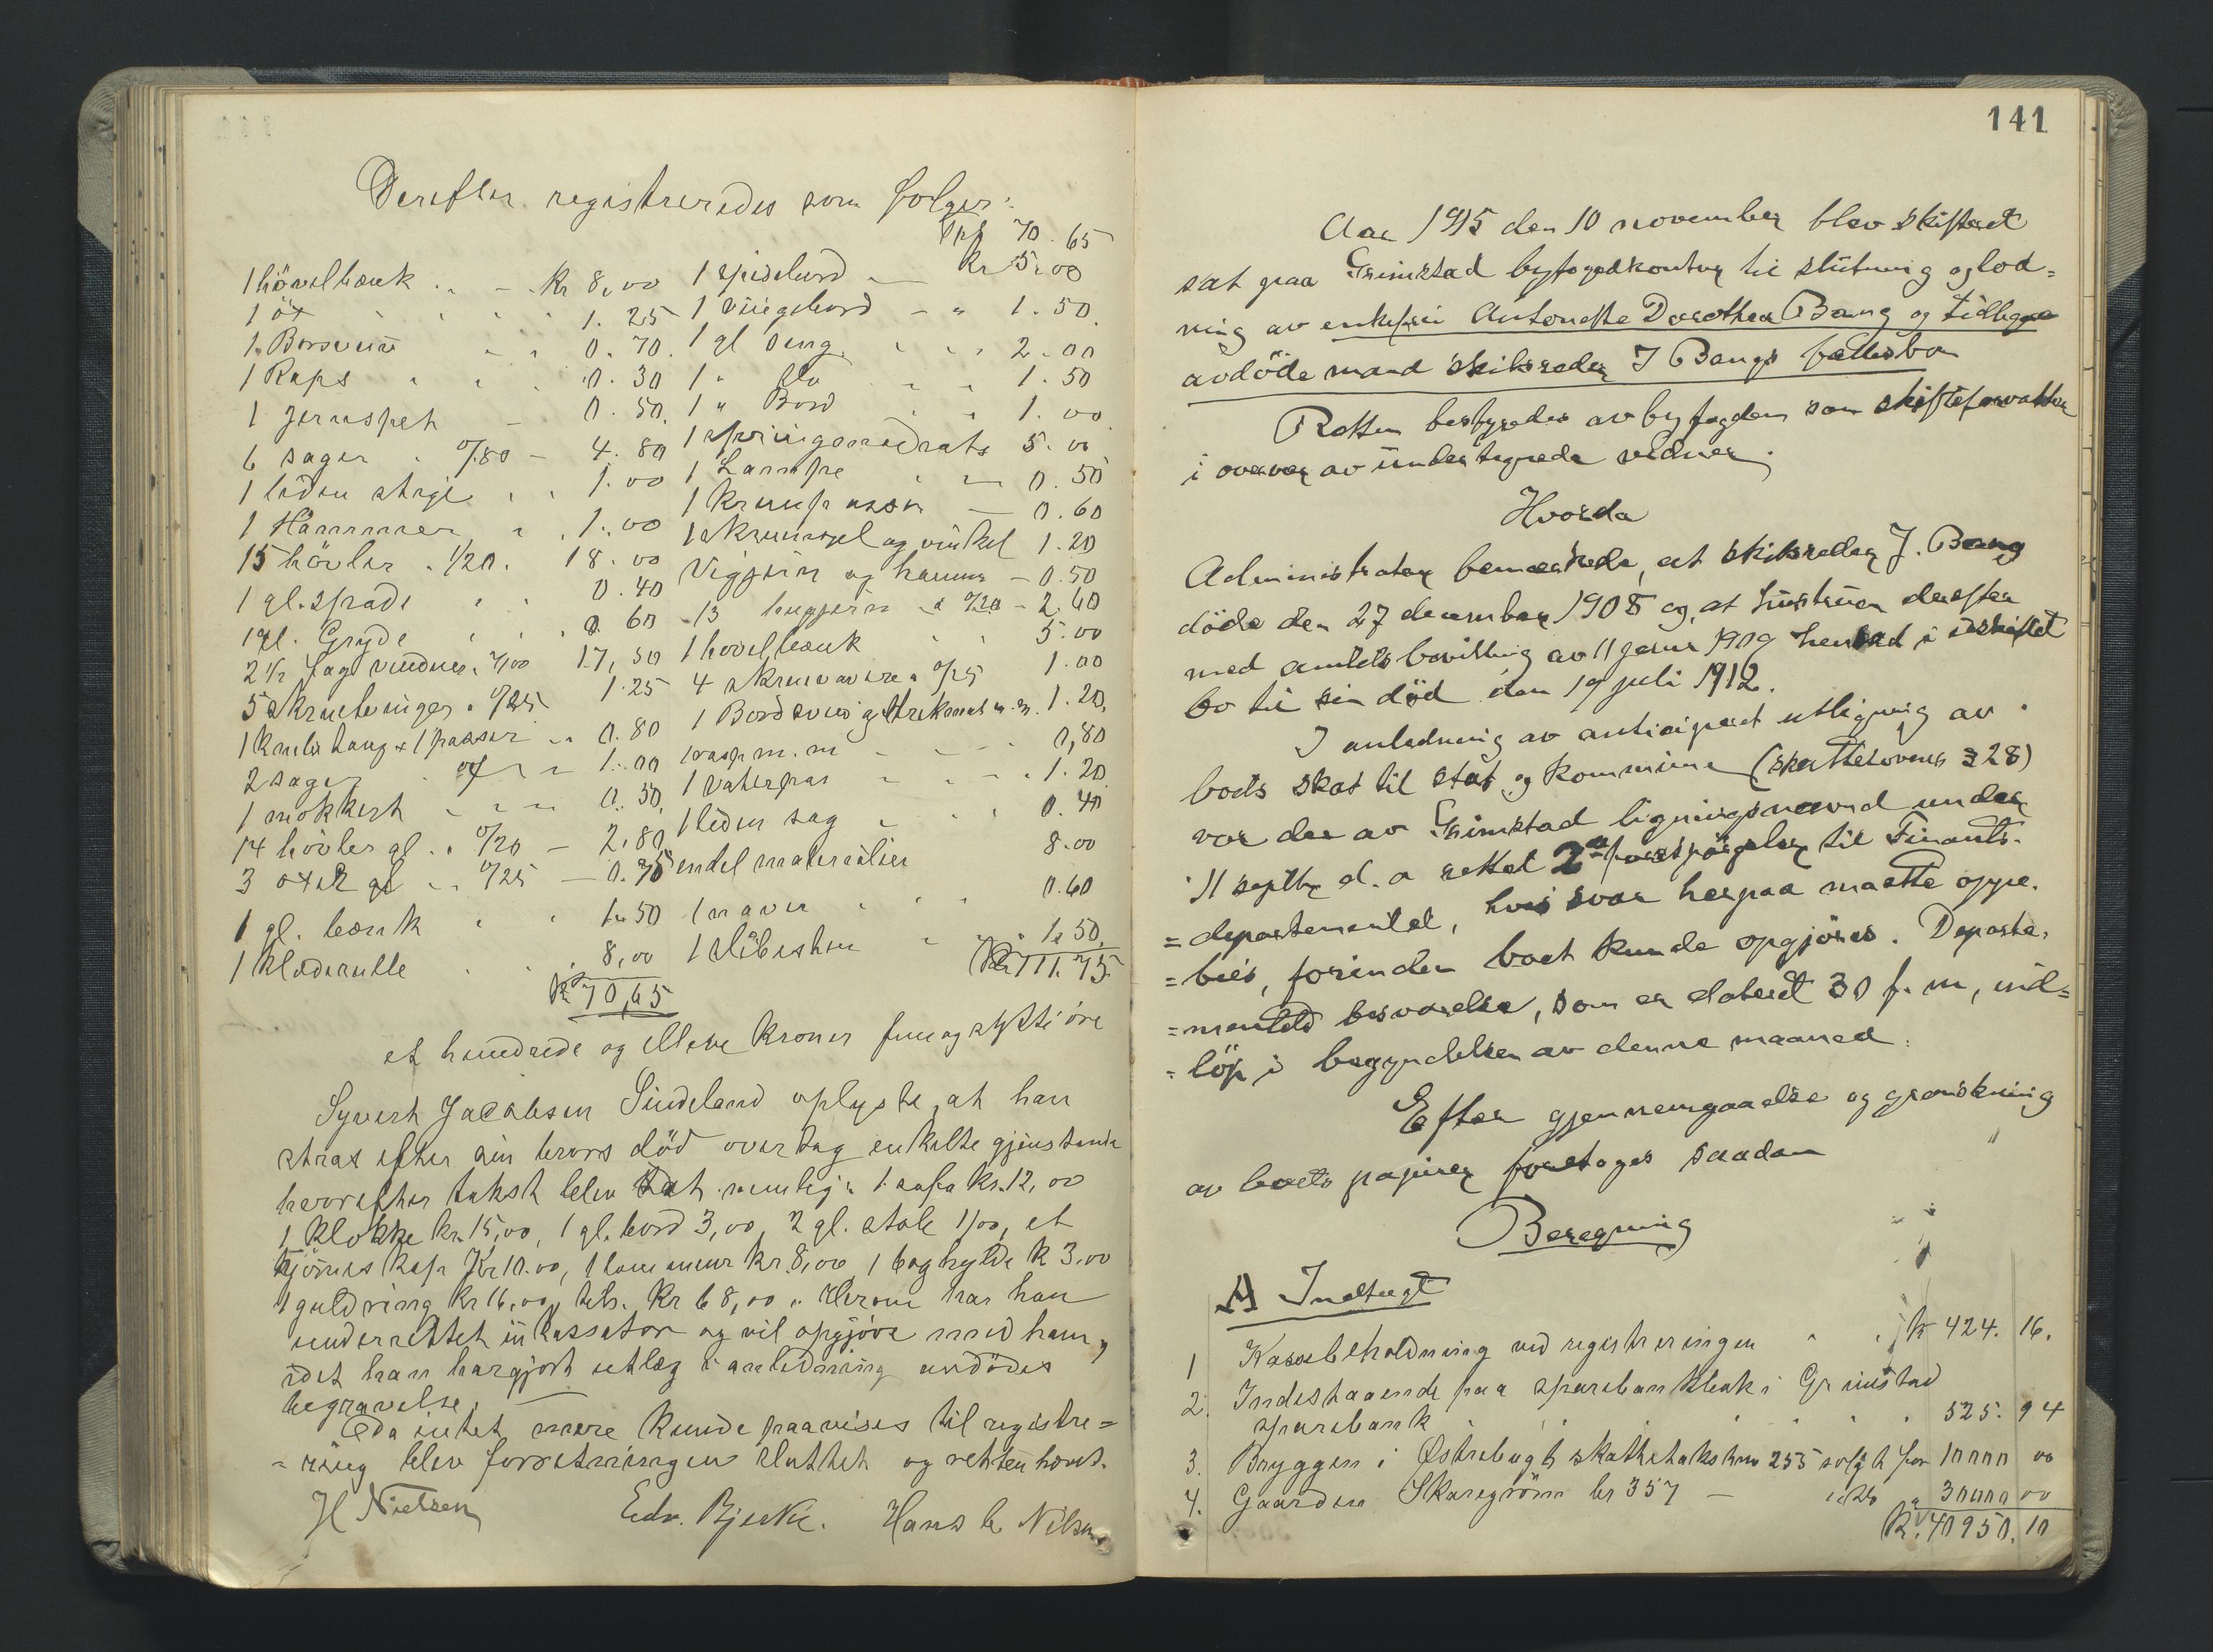 Derefter registreredes som følger:
Trf 70.65
1 hövelbænk " - Kr 8,00
1 öx 1.25
1 Borsvin 0.70
1 Raps 0.30
1 jernspet 0.50
6 sager " 0/80 - 4.80
1 liden stige 1.00
1 Hammmer 1.00
15 hövler " 1/20. 18.00
1 gl. spade 0.40
1 gl. Gryde 0.60
2 1/2 fag vinduer " 7/00 17,50
5 skrutvinger " 0/25 1.25
1 knibtang + 1 passer " 0.80
2 sager 1.00
1 mokkert 0.50
14 hövler gl. " 0/20 - 2,80
3 øxer gl " 0/25 - 0.75
1 gl. bænk 1.50
1 Klæderulle 8,00
Kr 70,65
1 spisebord - Kr 5.00
1 Vingebord - " 1.50
1 gl seng 2.00
1 " do 1.50
1 " Bord 1.00
1 springmadrats 5.00
1 Lampe - 0.50
1 krumpasser - 0.60
1 skrumspel og vinkel 1.20
Vigjern og hammer - 0.50
13 hugjern " a 0/20 - 2.60
1 hovelbænk 5.00
4 skruvavere " 0/25 1.00
1 Bordsvin og Strekmat m.m. 1.20
1 rasp m.m 0,80
1 Vaterpas 1.20
1 liden sag 0.40
endel materialier 8.00
1 naver 0.60
1 Slibesten 1.50
Kr 111.75
et hundrede og elleve kroner fem og sytti öre
Syvert Jacobsen Sindeland oplyste, at han
strax efter sin brors död overtog enkelte gjenstande
hvorefter takst blev sat nemlig: 1 sofa kr. 12,00
1 Klokke kr. 15,00, 1 gl. bord 3,00, 2 gl. stole 1/00, et
hjörneskap Kr 10.00, 1 lommeur kr. 8,00, 1 boghylde k 3.00
1 guldring kr 16,00, tils. Kr 68,00. Herom har han
underrettet inkassator og vil opgjöre med ham,
idet han har gjort utlæg i anledning avdödes
begravelse.
Da intet mere kunde paavises til registre=
=ring blev forretningen sluttet og retten hævet.
H Nielsen Edv. Bjerke. Hans C Nilsen
141
Aar 1915 den 10 november blev skifteret
sat paa Grimstad byfogedkontor til slutning og lod=
ning av enkefru Antonette Dorothea Bang og tidligere
avdöde mand skibsreder J Bangs fællesbo
Retten bestyredes av byfogden som skifteforvalter
i overvær av undertegnede vidner.
Hvorda
Administrator bemerkede, at skibsreder J. Bang
döde den 27 december 1908 og at hustruen derefter
med amtets bevilling av 11 januar 1909 hensad i uskiftet
bo til sin död den 19 juli 1912.
I anledning av anticiperet utligning av
boets skat til stat og kommune (skattelovens § 28)
var der av Grimstad ligningsnævnd under
11 septbr d. a rettet 2de forespörgsler til Finants=
=departementet, hvis svar herpaa maatte oppe=
=bies, forinden boet kunde opgjöres. Departe=
=mentets besvarelse, som er dateret 30 f. m, ind=
=löp i begyndelsen av denne maaned.
Efter gjennemgaaelse og granskning
av boets papirer foretages saadan
Beregning
A Indtægt
1 Kassebeholdning ved registreringen kr 424. 16.
2. Indestaaende paa sparebankbok i Grimstad
sparebank 525. 94
3. Bryggen i Østrebugt skattetakst no 255 solgt for 10000 00
4. Gaarden Skaregröm br 357 - do " 30000 00
Kr. 40950. 10